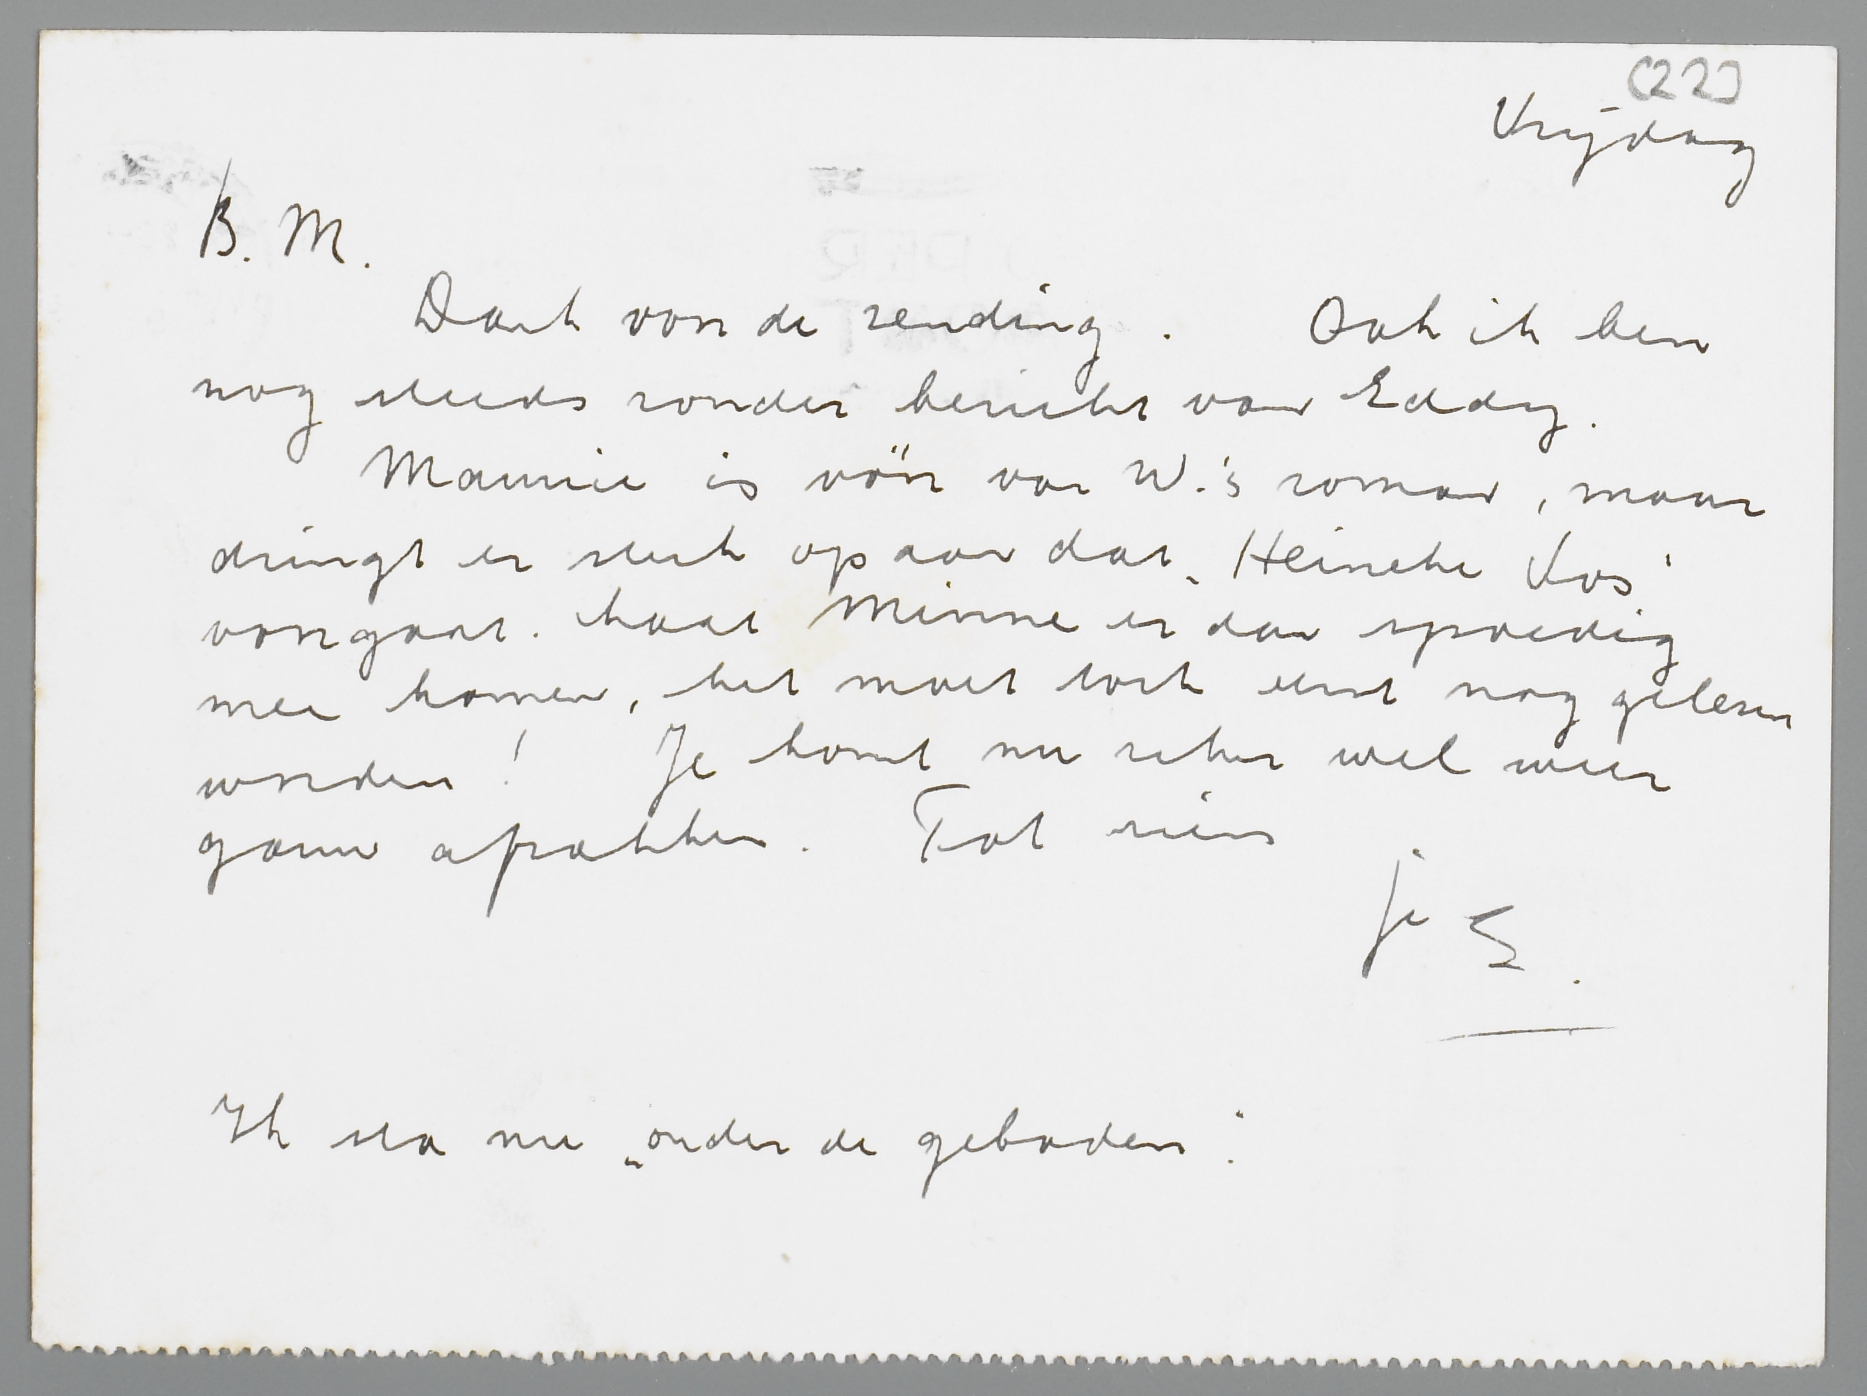 [22]
Vrijdag
B. M.
Dank van de zending. Ook ik ben
nog steeds zonder bericht van Eddy.
Maurice is vóór van W.'s roman, maar
dringt er sterk op aan dat „Heineke Vos"
voorgaat. Laat Minne er dan spoedig
mee komen, het moet toch eerst nog gelezen
worden! Je komt nu zeker wel weer
gauw afzakken. Tot ziens
je G.
Ik sta nu „onder de geboden".